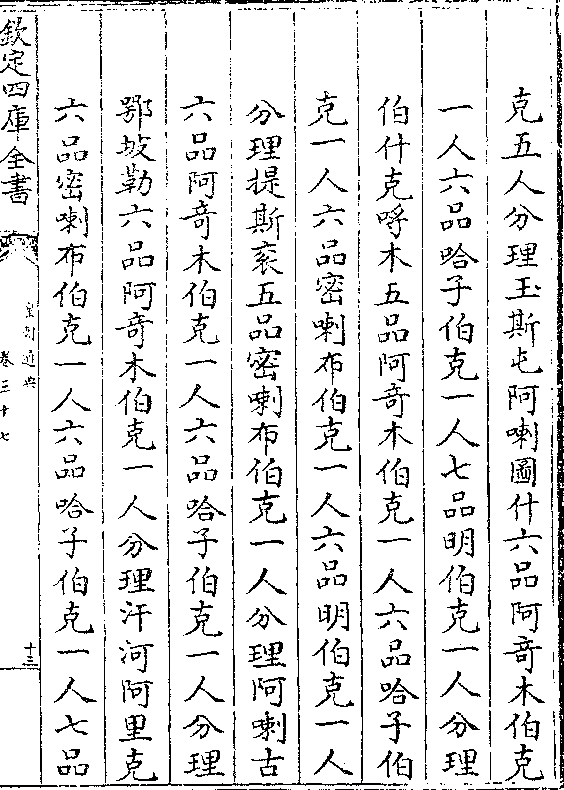 克五人分理玉斯屯阿喇圖什六品阿竒木伯克
一人六品哈子伯克一人七品明伯克一人分理
伯什克哷木五品阿竒木伯克一人六品哈子伯
克一人六品密喇布伯克一人六品明伯克一人
分理提斯衮五品密喇布伯克一人分理阿喇古
六品阿竒木伯克一人六品哈子伯克一人分理
鄂坡勒六品阿竒木伯克一人分理汗河阿里克
六品密喇布伯克一人六品哈子伯克一人七品
欽定四庫全書
皇朝通典
卷三十七
十三